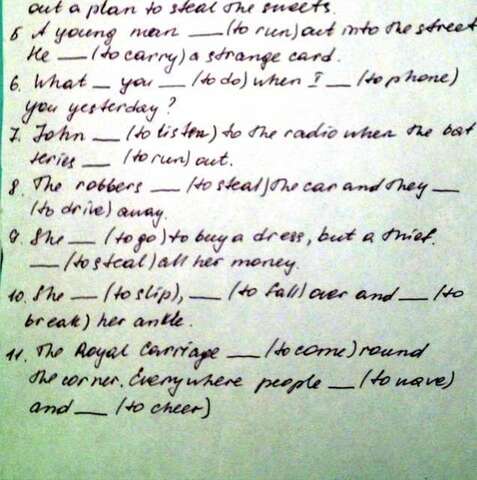 out a plan to steal the sweets.
5. A young man __ (to run) out into the street
He __ (to carry) a strange card.
6. What _ you __ (to do) when I _ (to phone)
you yesterday?
7. John __ (to listen) to the radio when the bat
teries __ (to run) out.
8. The robbers __ (to steal) the car and they __
(to drive) away.
9. She __ (to go) to buy a dress, but a thief.
__ (to steal) all her money.
10. She __ (to slip), __ (to fall) over and __ (to
break) her ankle.
11. The Royal Carriage __ (to come) round
the corner. Everywhere people __ (to wave)
and __ (to cheer)